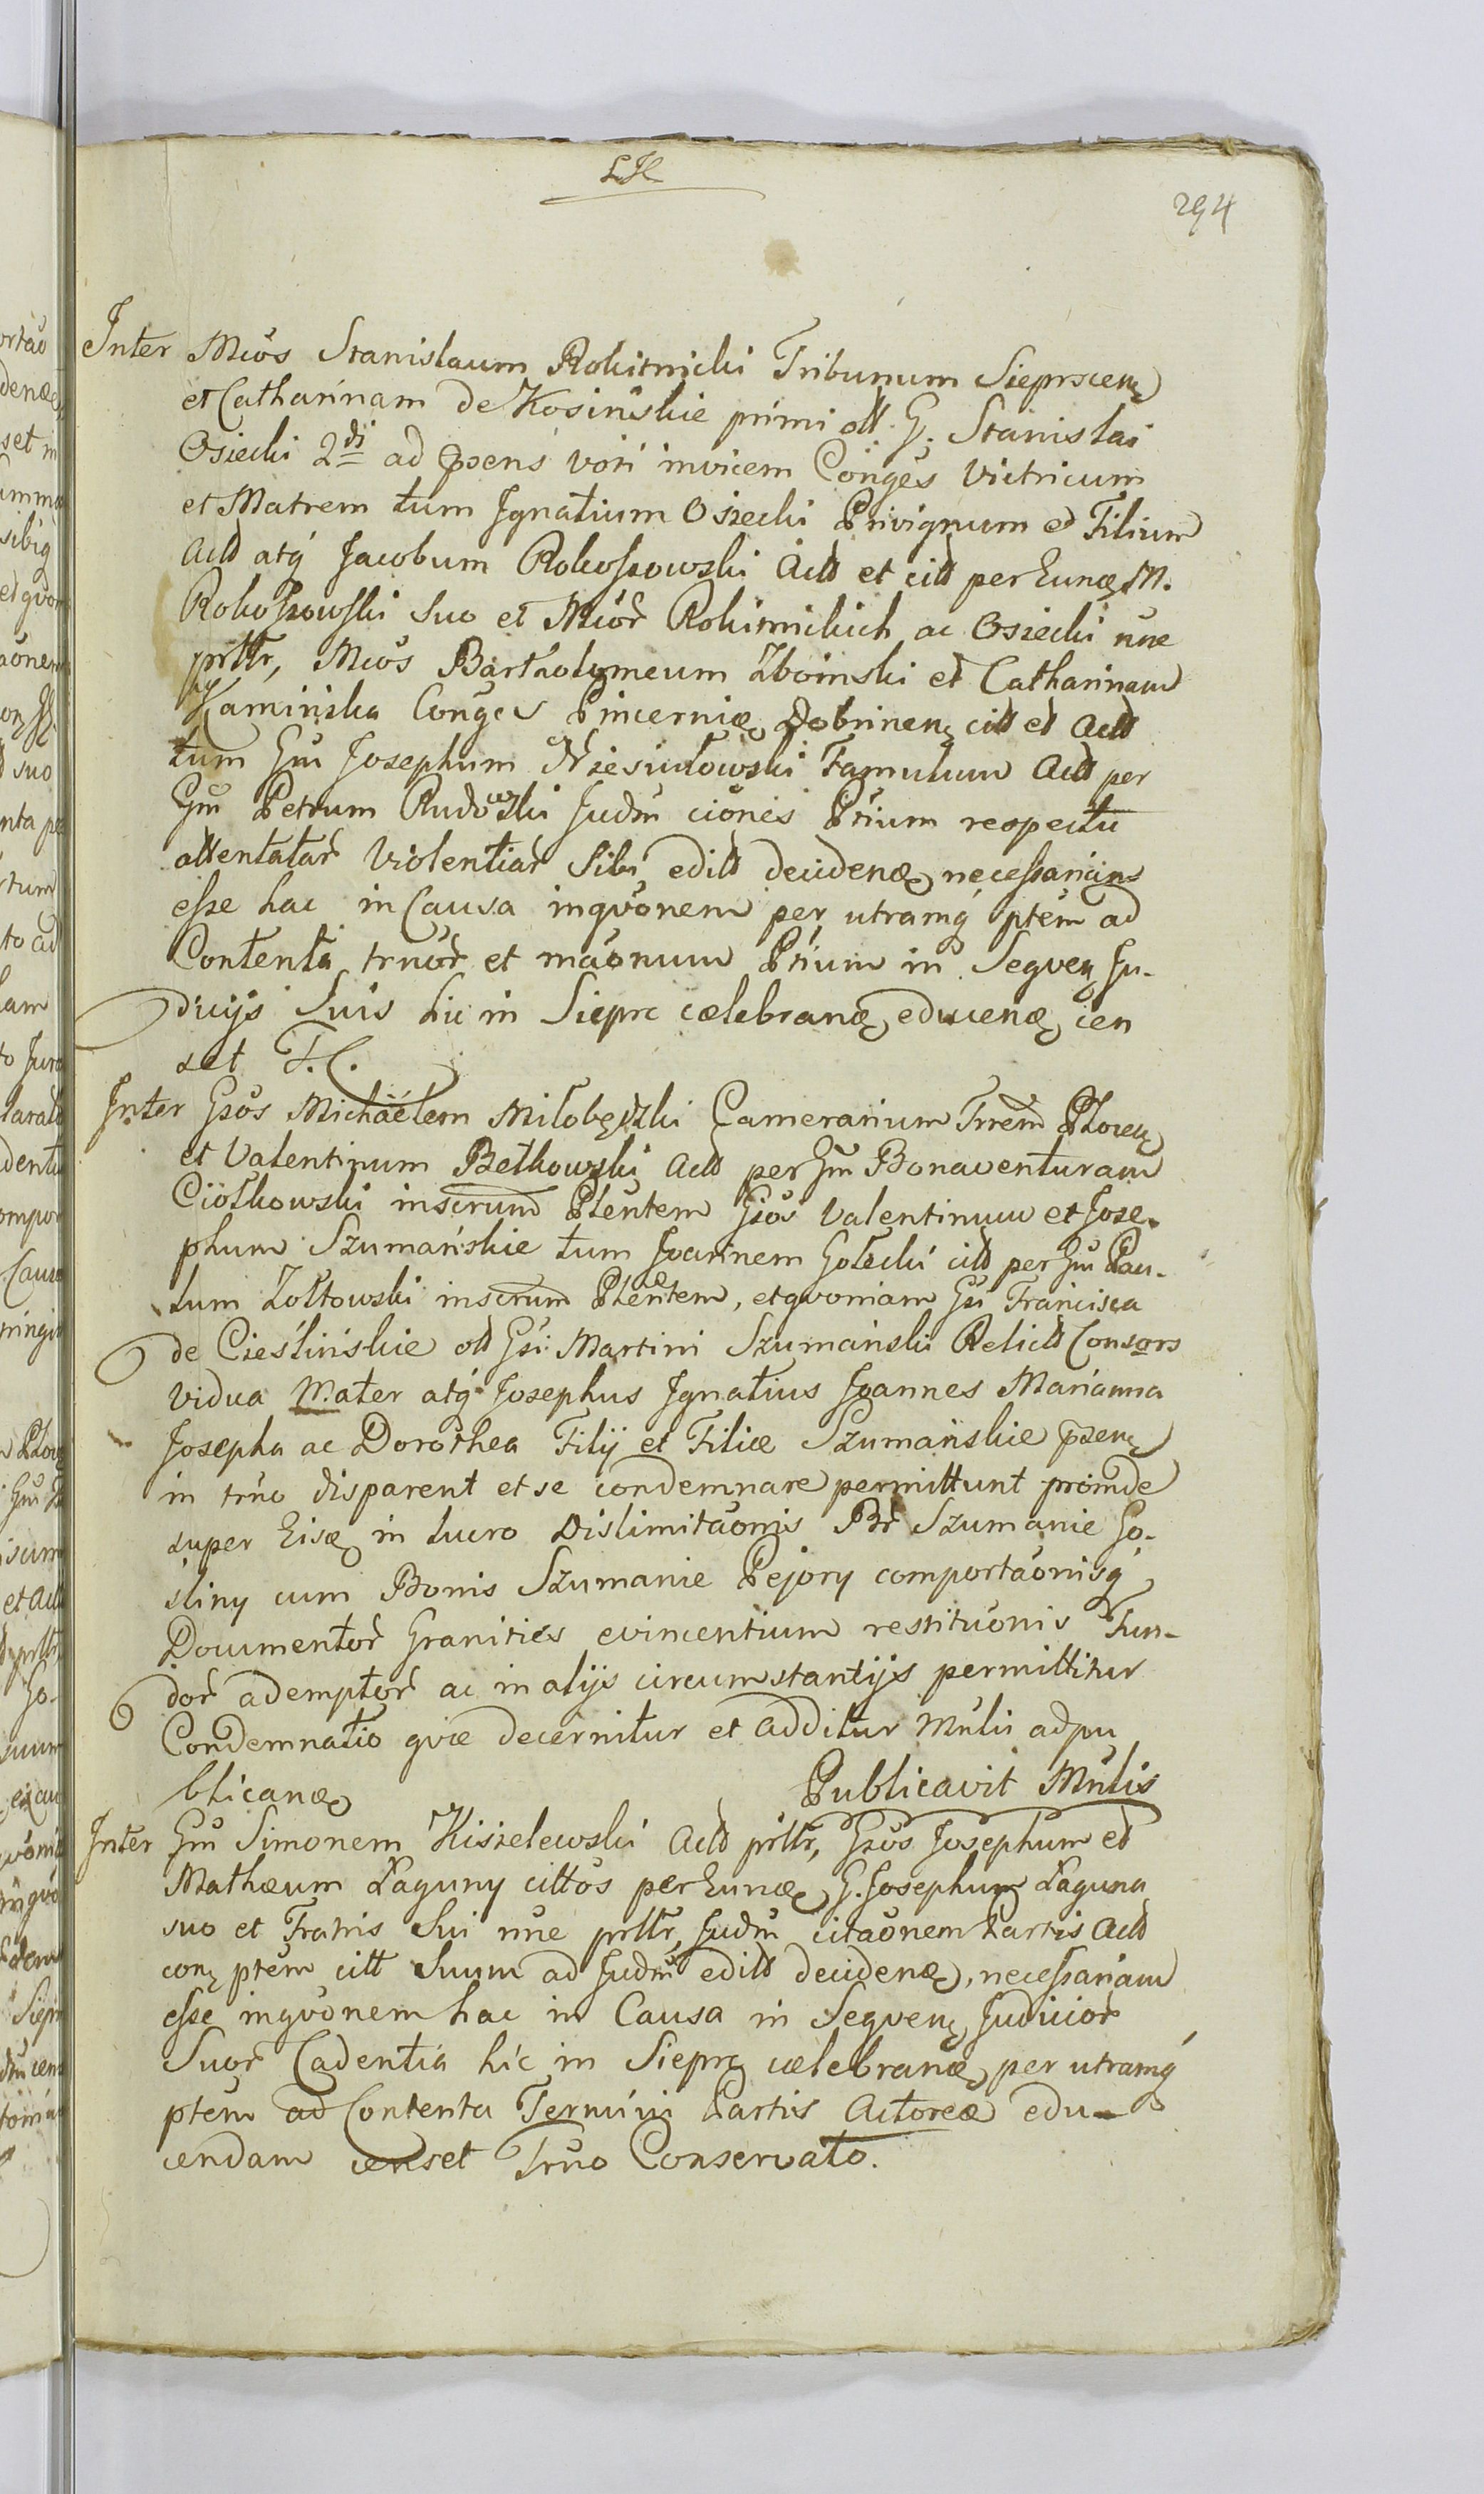 294
Inter Mcos Stanislaum Rokitnicki Tribunum Sieprscen
et Catharinam de Kosinskie primi olt G. Stanislai
Osiecki 2di ad psens voti invicem Conges Victricum
et Matrem tum Ignatium Osiecki Privignum et Filium
Actt atq Jacobum Rokoszowski Actt et citt per Eunæ M.
Rokoszowski Suo et Mcor Rokitnickich ac Osiecki nne
prttr, Mcos Bartholomeum Zboinski et Catharinam
Kaminska Conges Pincernię Dobrinen citt et Actt
tum Gm Josephum Niesiułowski Famulum Actt per
Gm Petrum Rudowski Judm ciones Ptium respectu
attentatar Violentiar Sibi editt decidenæ necessarian
esse hac in Causa inqvonem per utramq ptem ad
Contenta trnor et maonum Ptium in Seqven Ju-
dicijs Suis hic in Siepr cælebranæ educenæ cen
set T.C.
Inter Gsos Michaëlem Miłobędzki Camerarium Trrem Plocen
et Valentinum Bethowski Actt per Gm Bonaventuram
Ciołkowski inscrum Plentem Gsos Valentinum et Jose-
phum Szumańskie tum Joannem Golecki citt per Gm Pau-
lum Zołtowski inscrum Plentem, et qvoniam Gsi Francisca
de Cieślińskie olt Gsi Martini Szumański Relictt Consors
vidua Mater atq Josephus Ignatius Joannes Marianna
Josepha ac Dorothea Filij et Filiæ Szumańskie psen
in trno disparent et se condemnare permittunt proinde
super Eisæ in lucro Dislimitaonis Br Szumanie Go-
sliny cum Bonis Szumanie Pejory comportaonisq
Documentor Granities evincentium restituonis Fun-
dor ademptor ac in alijs circumstantijs permittitur
Condemnatio qvæ decernitur et additur Mnlis ad pu
blicanæ Publicavit Mnlis
Inter Gm Simonem Kisielewski Actt prttr, Gsos Josephum et
Mathæum Łaguny cittos per Eunæ G. Josephum Łaguna
suo et Fratris Sui nne prttr, Judm citaonem Partis Actt
con ptem citt Suum ad Judm editt decidenæ, necessariam
esse inqvonem hac in Causa in Seqven Judicior
Suor Cadentia hic in Siepr cælebranæ per utramq
ptem ad Contenta Termini Partis Actoreæ edu-
cendam censet Trno Conservato.